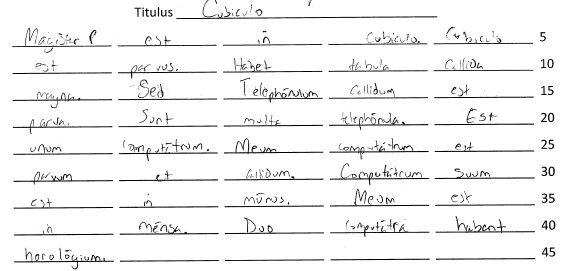 Titulus Cubiculo
Magister P est in Cubiculo. Cubiculo 5
est parvus. Habet tabula Callida 10
magna. Sed Telephōnium Callidum est 15
parva. Sunt multa telephōnula. Est 20
unum Computātrum. Meum computātrum est 25
parvum et callidum. Computātrum suum 30
est in mūrus. Meum est 35
in mēnsa. Duo Computātra habent 40
horolōgium. 45